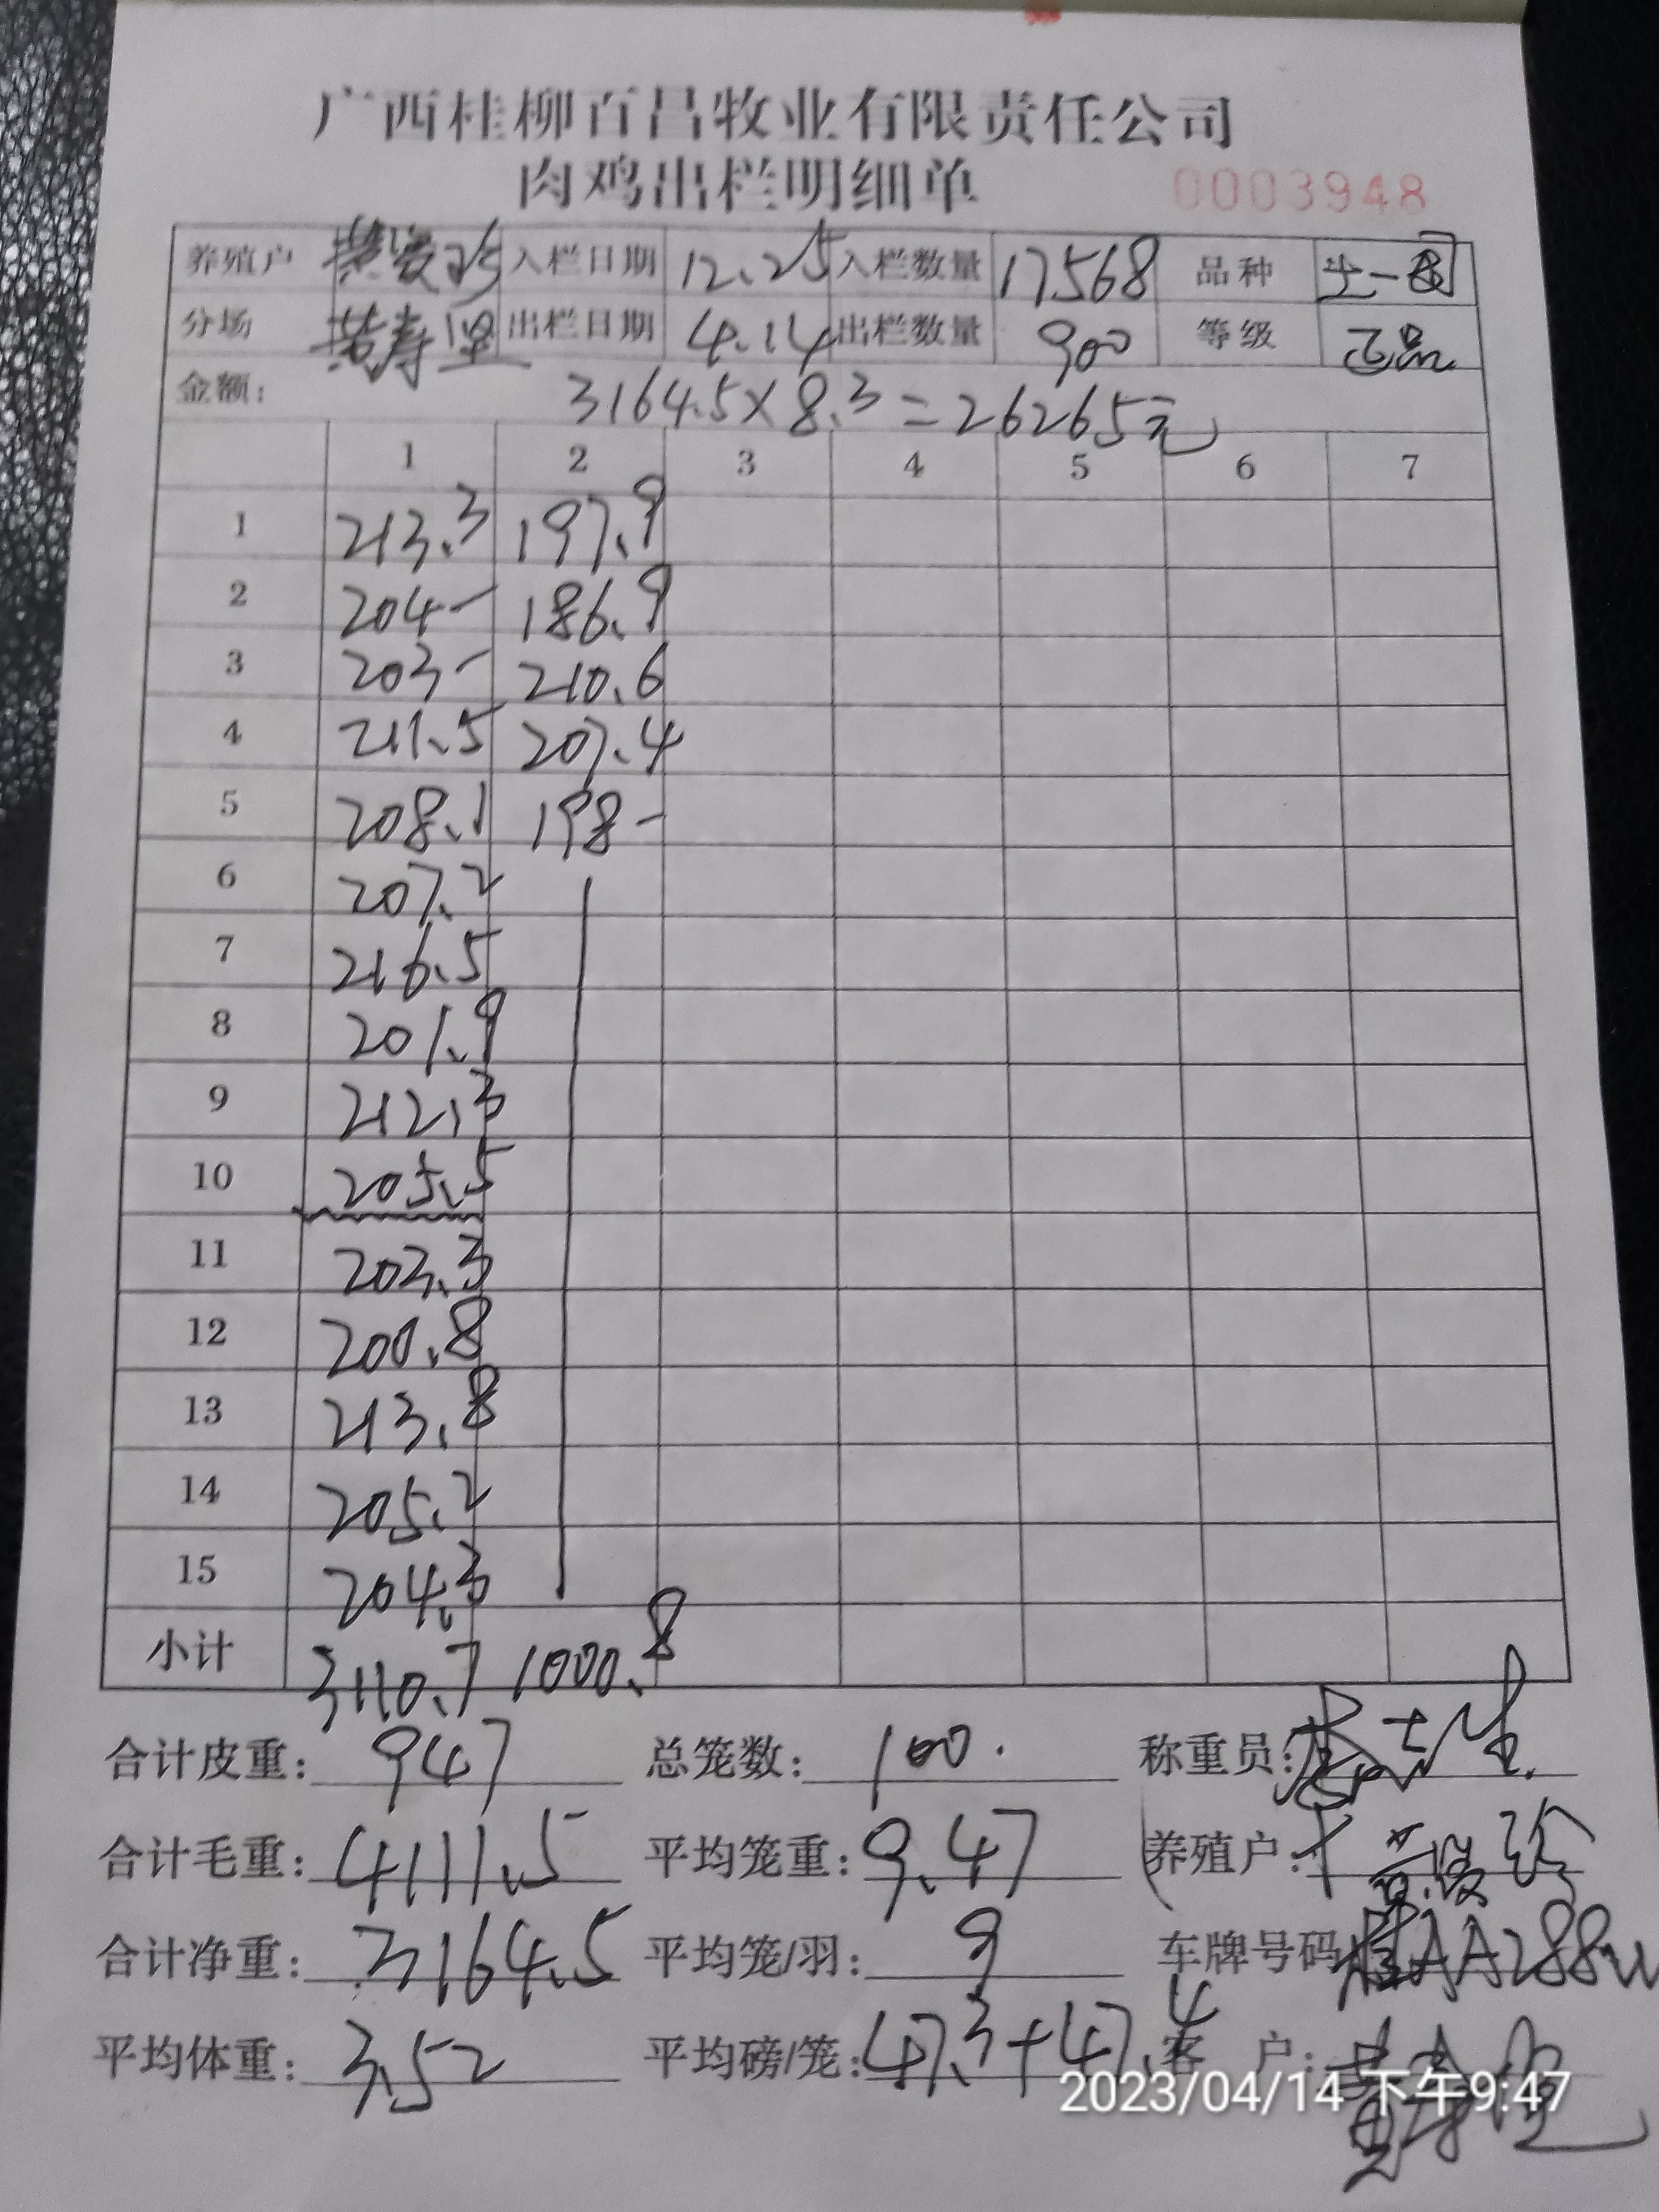 广西桂柳百昌牧业有限责任公司
肉鸡出栏明细单 0003948
养殖户 黄爱珍 入栏日期 12.25 入栏数量 17568 品种
分场 黄寿坚 出栏日期 4.14 出栏数量 900 等级 正品
金额: 3164.5×8.3=26265元
1 2 3 4 5 6 7
1 213.3 197.9
2 204- 186.9
3 203- 210.6
4 211.5 207.4
5 208.1 198-
6 207.2
7 216.5
8 201.9
9 212.3
10 205.5
11 203.3
12 200.8
13 213.8
14 205.2
15 204.3
小计 3110.7 1000.8
合计皮重: 947 总笼数: 100. 称重员:
合计毛重: 4111.5 平均笼重: 9.47 养殖户: 黄爱珍
合计净重: 3164.5 平均笼/羽: 9 车牌号码 桂AA288W
平均体重: 3.52 平均磅/笼: 47.3+47.4 客 户:
2023/04/14 下午9:47